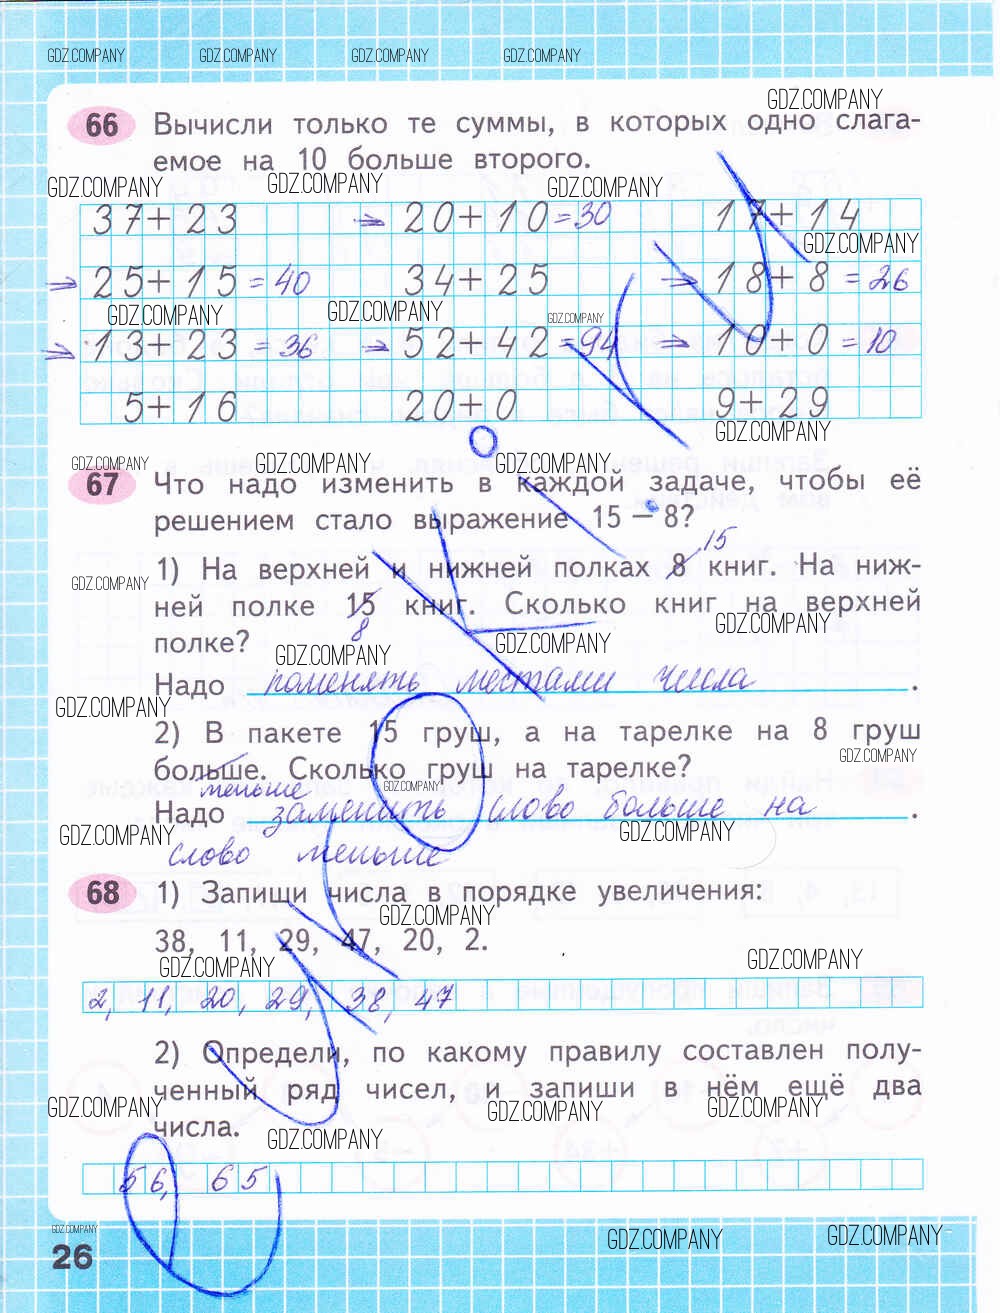 GDZ.COMPANY GDZ.COMPANY GDZ.COMPANY GDZ.COMPANY
GDZ.COMPANY
66 Вычисли только те суммы, в которых одно слага-
емое на 10 больше второго.
GDZ.COMPANY GDZ.COMPANY GDZ.COMPANY
37+23 ⇒ 20+10=30 17+14
GDZ.COMPANY
⇒ 25+15=40 34+25 ⇒ 18+8=26
GDZ.COMPANY GDZ.COMPANY GDZ.COMPANY
⇒ 13+23=36 ⇒ 52+42=94 ⇒ 10+0=10
5+16 20+0 9+29
GDZ.COMPANY
GDZ.COMPANY GDZ.COMPANY GDZ.COMPANY
67 Что надо изменить в каждой задаче, чтобы её
решением стало выражение 15 – 8?
15
1) На верхней и нижней полках 8 книг. На ниж-
GDZ.COMPANY
ней полке 15 книг. Сколько книг на верхней
GDZ.COMPANY
8
полке?
GDZ.COMPANY GDZ.COMPANY
Надо поменять местами числа.
GDZ.COMPANY
2) В пакете 15 груш, а на тарелке на 8 груш
GDZ.COMPANY
больше. Сколько груш на тарелке?
меньше GDZ.COMPANY
Надо заменить слово больше на.
GDZ.COMPANY GDZ.COMPANY
слово меньше
68 1) Запиши числа в порядке увеличения:
GDZ.COMPANY
38, 11, 29, 47, 20, 2.
GDZ.COMPANY GDZ.COMPANY
2, 11, 20, 29, 38, 47
2) Определи, по какому правилу составлен полу-
ченный ряд чисел, и запиши в нём ещё два
GDZ.COMPANY GDZ.COMPANY GDZ.COMPANY
числа.
GDZ.COMPANY
56, 65
GDZ.COMPANY GDZ.COMPANY GDZ.COMPANY
26